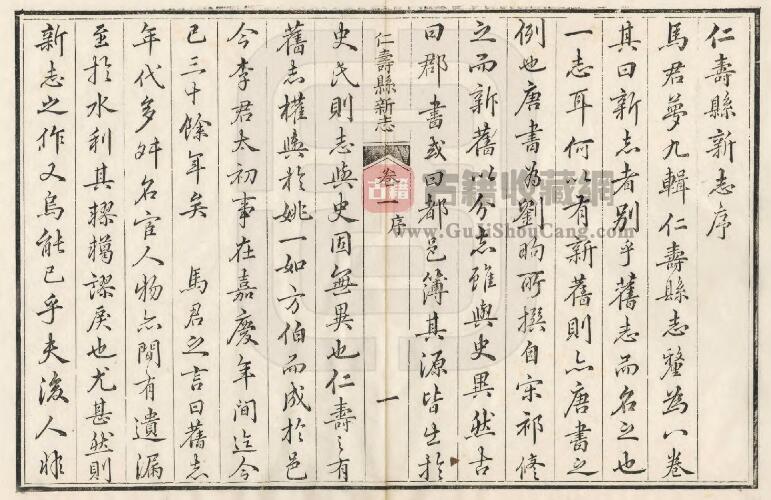 仁壽縣新志序
馬君夢九輯仁壽縣志釐為八卷
其曰新志者別乎舊志而名之也
一志耳何以有新舊則亦唐書之
例也唐書為劉昫所撰自宋祁修
之而新舊以分志雖與史異然古
曰郡書或曰都邑簿其源皆出於
仁壽縣新志
卷一序
一
史氏則志與史固無異也仁壽之有
舊志權輿於姚一如方伯而成於邑
今李君太初事在嘉慶年間迄今
已三十餘年矣 馬君之言曰舊志
年代多舛名宦人物亦間有遺漏
至於水利其轇轕謬戾也尤甚然則
新志之作又烏能已乎夫後人
古籍
古籍收藏網
www.GuJiShouCang.com